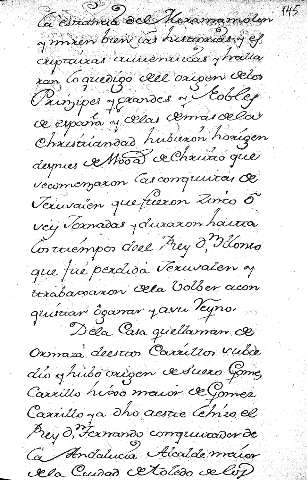 145
la estoria del Miramamolin
y miren bien las historias y es
cripturas autenticas y halla
ran lo que digo del origen de los
Principes y grandes y Nobles
de españa y de las demas de la
Christiandad hubieron horigen
despues de de Christo que
se comenzaron las conquistas de
Jerusalen que fueron zinco ó
sey Jornadas y duraron hasta
los tiempos del Rey Dn. Alonso
que fué perdida Jerusalen y
trabaxaron de la volber a con
quistar y ganar y a su Reyno.
De la Casa que llaman de
Ormaza de estos Carrillos sube
dio y hubo origen de suero Gomez
Carrillo hixo maior de Gomez
Carrillo ya dho a este el
Rey Dn. Fernando conquistador de
la Andalucia Alcalde maior
de la Ciudad de Toledo de los